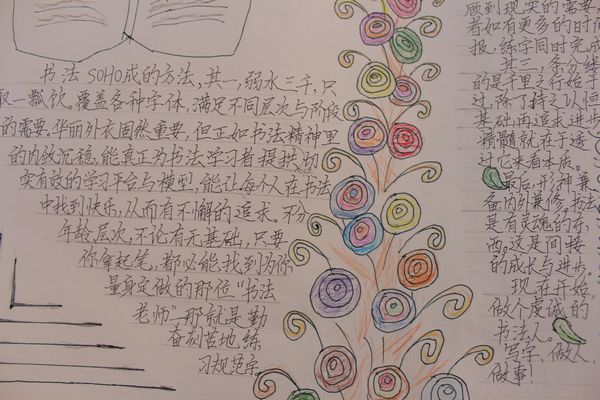 书法SOHO成的方法,其一,弱水三千,只
取一瓢饮,覆盖各种字体,满足不同层次与阶段
的需要.华丽外衣固然重要,但正如书法精神里
的内敛沉稳,能真正为书法学习者提供切
实有效的学习平台与模型,能让每个人在书法
中找到快乐,从而有不懈的追求。不分
年龄层次,不论有无基础,只要
你拿起笔,都必能找到为你
量身定做的那位“书法
老师”那就是勤
奋刻苦地,练
习规范字。
顾到现实的需要
者如有更多的时间
报,练字同时完成
其三,条分缕
的是千里之行始于
过,除了持之以恒
基础再追求进步
精髓就在于透
过它来看本质。
最后,形神兼
备内外兼修,书法
是有灵魂的东
西。这是间接
的成长与进步。
现在开始,
做个虔诚的
书法人。
写字、做人、
做事!